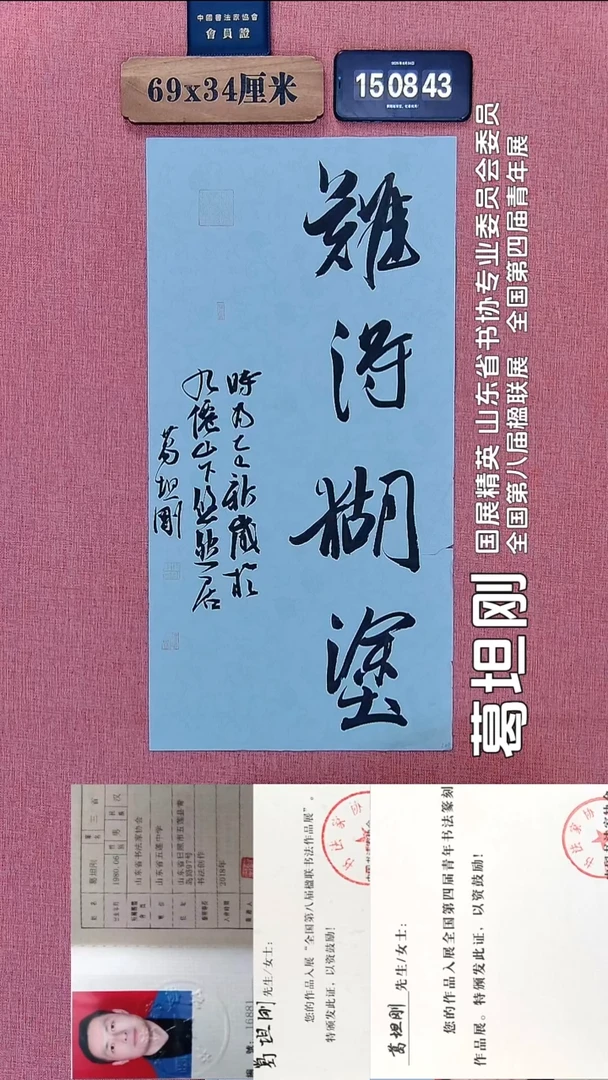 中國書法家協會
會員證
69x34厘米
15 08 43
難得糊塗
時为乙巳新歲於
九僊山下悠然居
葛坦剛
国展精英 山东省书协专业委员会委员
全国第八届楹联展 全国第四届青年展
葛坦刚
姓名 葛坦刚
1980.06
山东省书法家协会
山东省五莲中学
书法创作
2018年
葛坦刚 先生/女士:
您的作品入展“全国第八届楹联书法作品展”。
特颁发此证,以资鼓励!
葛坦刚 先生/女士:
您的作品入展全国第四届青年书法篆刻
作品展。特颁发此证,以资鼓励!